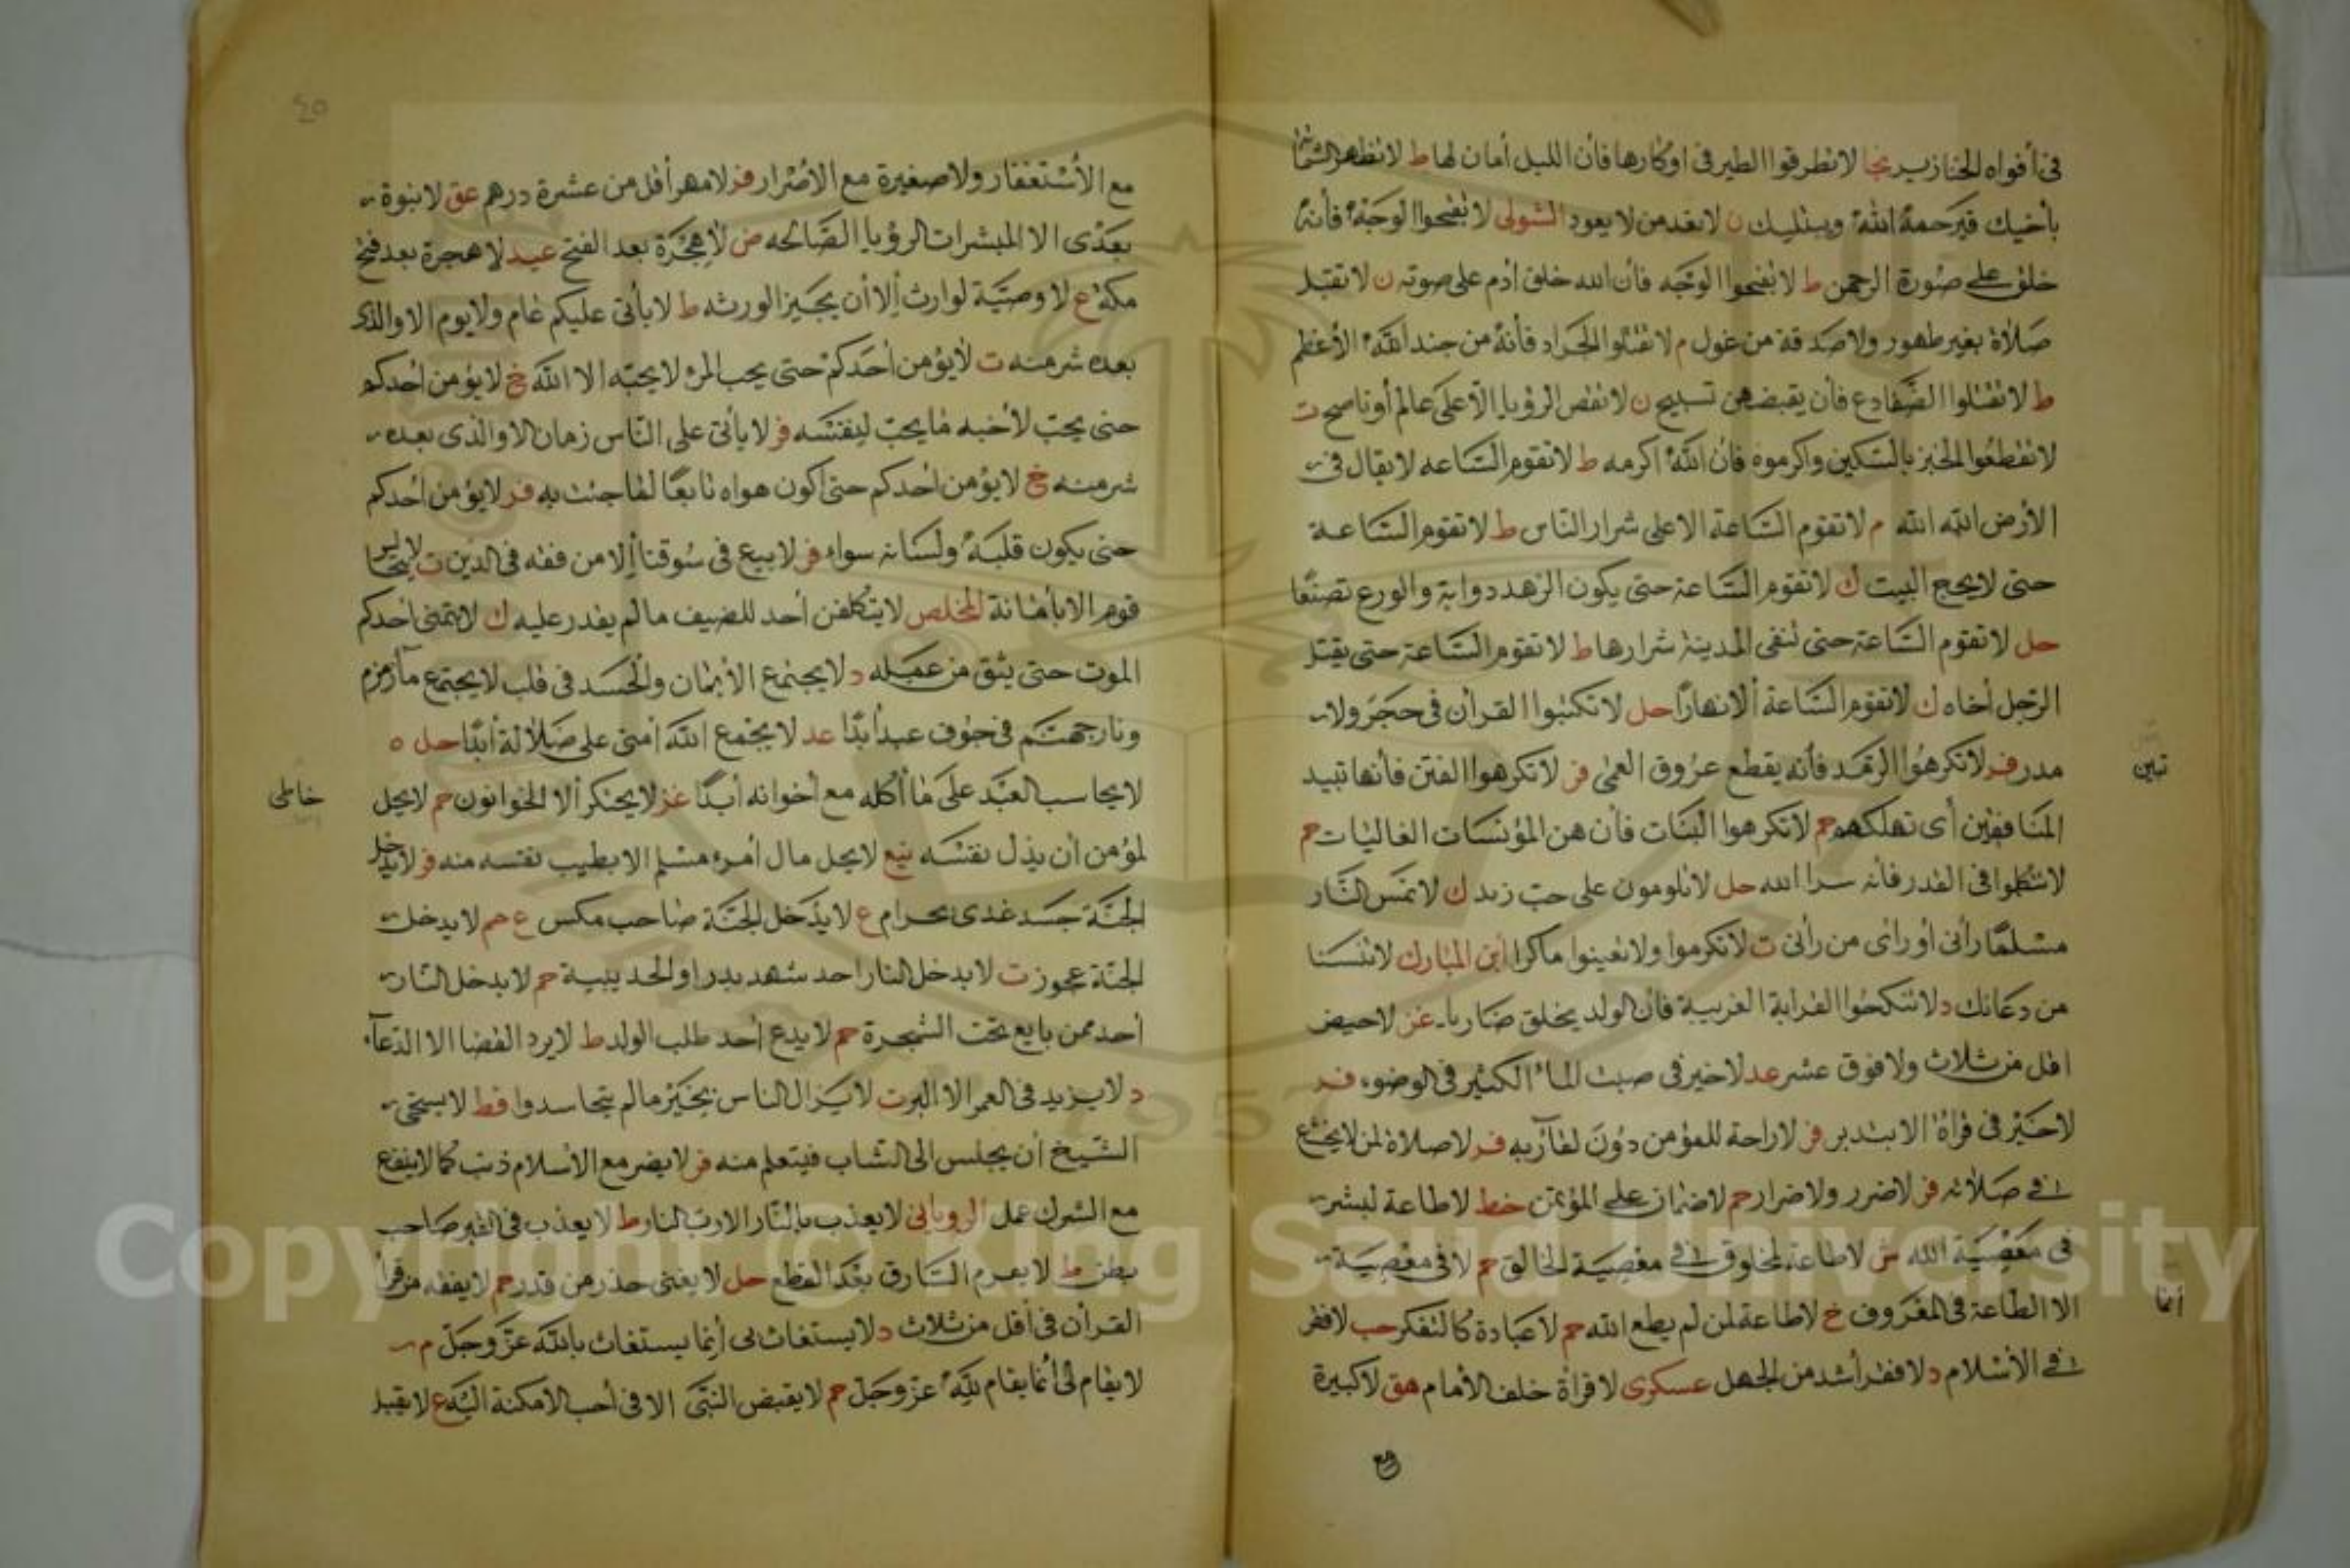 في أفواه الخنازير نجا لا تطرقوا الطير في اوكارها فأن الليل أمان لها ط لا تظهر الشماتة
بأخيك فيرحمه الله ويبتليك ن لا تعد من لا يعود الشولى لا تقبحوا الوجه فأنه
خلق على صورة الرحمن ط لا تقبحوا الوجه فأن الله خلق أدم على صوته ن لا تقبل
صلاة بغير طهور ولا صدقة من غول م لا تقتلوا الجراد فأنه من جند الله الأعظم
ط لا تقتلوا الضفادع فأن يقبضهن تسبيح ن لا تقص الرؤيا الا على عالم أو ناصح ت
لا تقطعوا الخبز بالسكين واكرموه فان الله اكرمه ط لا تقوم الساعه لا يقال في
الأرض الله الله م لا تقوم الساعة الا على شرار الناس ط لا تقوم الساعة
حتى لا يحج البيت ك لا تقوم الساعة حتى يكون الزهد دواية والورع تصنعا
حل لا تقوم الساعة حتى تنفى المدينة شرارها ط لا تقوم الساعة حتى يقتل
الرجل أخاه ك لا تقوم الساعة ألا نهارا حل لا تكتبوا القرأن في حجر ولا
مدر فر لا تكرهوا الرمد فأنه يقطع عروق العمى فر لا تكرهوا الفتن فأنها تبيد
تبين
المنافقين أى تهلكهم حم لا تكرهوا البنات فأن هن المؤنسات الغاليات حم
لا تتكلموا في القدر فأنه سر الله حل لا تلومون على حب زيد ك لا تمس النار
مسلما رأنى أو رأى من رأنى ت لا تكرموا ولا تعينوا ماكرا ابن المبارك لا تنسنا
من دعائك د لا تنكحوا القرابة القريبة فأن الولد يخلق ضاريا غز لا حيض
اقل من ثلاث ولا فوق عشر عد لا خير في صبت الماء الكثير في الوضوء فر
لا خير في قرأة الا بتدبر فر لا راحة للمؤمن دون لقاء ربه فر لا صلاة لمن لا يخشع
في صلاته فر لا ضرر ولا ضرار حم لا ضمان على المؤتمن خط لا طاعة لبشر
في معصية الله ش لا طاعة لمخلوق في معصية الخالق حم لا في معصية
الا الطاعة في المعروف خ لا طاعة لمن لم يطع الله حم لا عبادة كالتفكر حب لا فقر
أنما
في الأسلام د لا فقر أشد من الجهل عسكرى لا قرأة خلف الأمام هق لا كبيرة
مع
٤٥
مع الأستغفار ولا صغيرة مع الاصرار فر لا مهر أقل من عشرة درهم عق لا نبوة
بعدى الا المبشرات الرؤيا الصالحه ض لا هجرة بعد الفتح عيد لا هجرة بعد فتح
مكة ع لا وصية لوارث ألا أن يجيز الورثه ط لا يأتى عليكم عام ولا يوم الا والذى
بعده شر منه ت لا يؤمن أحدكم حتى يحب المرء لا يحبه الا الله خ لا يؤمن أحدكم
حتى يحب لأخيه ما يحب لنفسه فر لا يأتى على الناس زمان الا والذى بعده
شر منه خ لا يؤمن احدكم حتى اكون هواه تابعا لما جئت به فر لا يؤمن احدكم
حتى يكون قلبه ولسانه سواء فر لا يبيع في سوقنا ألا من فقه في الدين ت لا
قوم الا بأمانة المخلص لا يتكلفن أحد للضيف ما لم يقدر عليه ك لا يتمنى احدكم
الموت حتى يثق من عمله د لا يجتمع الأيمان والحسد في قلب لا يجتمع ماء زمزم
ونار جهنم في جوف عبد أبدا عد لا يجمع الله أمتى على ضلالة أبدا حل ه
لا يحاسب العبد على ما أكله مع أخوانه أبدا غز لا يحتكر ألا الخوانون حم لا يحل
خاطى
لمؤمن أن يذل نفسه نيع لا يحل مال أمرء مسلم الا بطيب نفسه منه فر لا يدخل
الجنة جسد غذى بحرام ع لا يدخل الجنة صاحب مكس ع حم لا يدخل
الجنة عجوز ت لا يدخل النار احد شهد بدر او الحديبية حم لا يدخل النار
أحد ممن بايع تحت الشجرة حم لا يدع أحد طلب الولد ط لا يرد القضا الا الدعاء
د لا يزيد في العمر الا البر ت لا يزال الناس بخير ما لم يتحاسدوا قط لا يستحى
الشيخ أن يجلس الى الشاب فيتعلم منه فر لا يضر مع الأسلام ذنب كما لا ينفع
مع الشرك عمل الرويانى لا يعذب بالنار الا رب النار ط لا يعذب في القبر صاحب
بطن ط لا يغرم السارق بعد القطع حل لا يغنى حذر من قدر حم لا يفقه من قرأ
القرأن في أقل من ثلاث د لا يستغاث بى أنما يستغاث بالله عز وجل م
لا يقام لى أنما يقام لله عز وجل حم لا يقبض النبى الا في أحب الأمكنة اليه ع لا يقبل
Copyright © King Saud University
1957